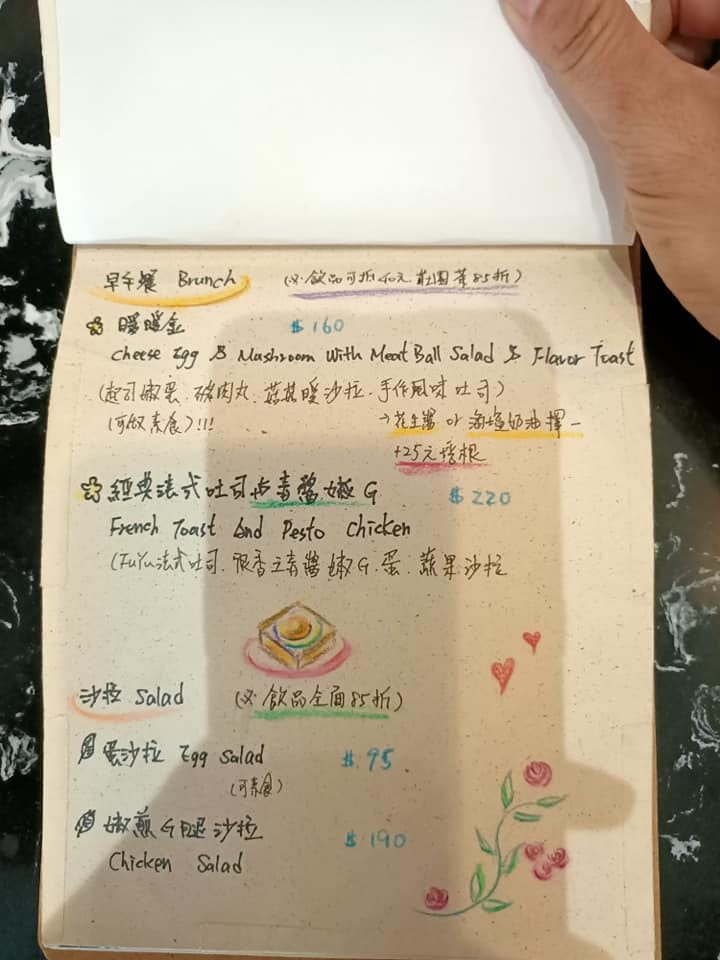 早午餐 Brunch (※飲品可折40元.莊園茶85折)
暖暖食 $160
Cheese Egg & Mushroom With Meat Ball Salad & Flavor Toast
(起司嫩蛋、豬肉丸、菇菇暖沙拉、手作風味吐司)
(可做素食)!!! →花生醬 or 海塩奶油擇一
+25元培根
經典法式吐司与青醬嫩G $220
French Toast And Pesto Chicken
(FuYu法式吐司、很香之青醬嫩G、蛋、蔬果沙拉
沙拉 Salad (※飲品全面85折)
蛋沙拉 Egg Salad $95
(可素食)
嫩煎G腿沙拉 $190
Chicken Salad